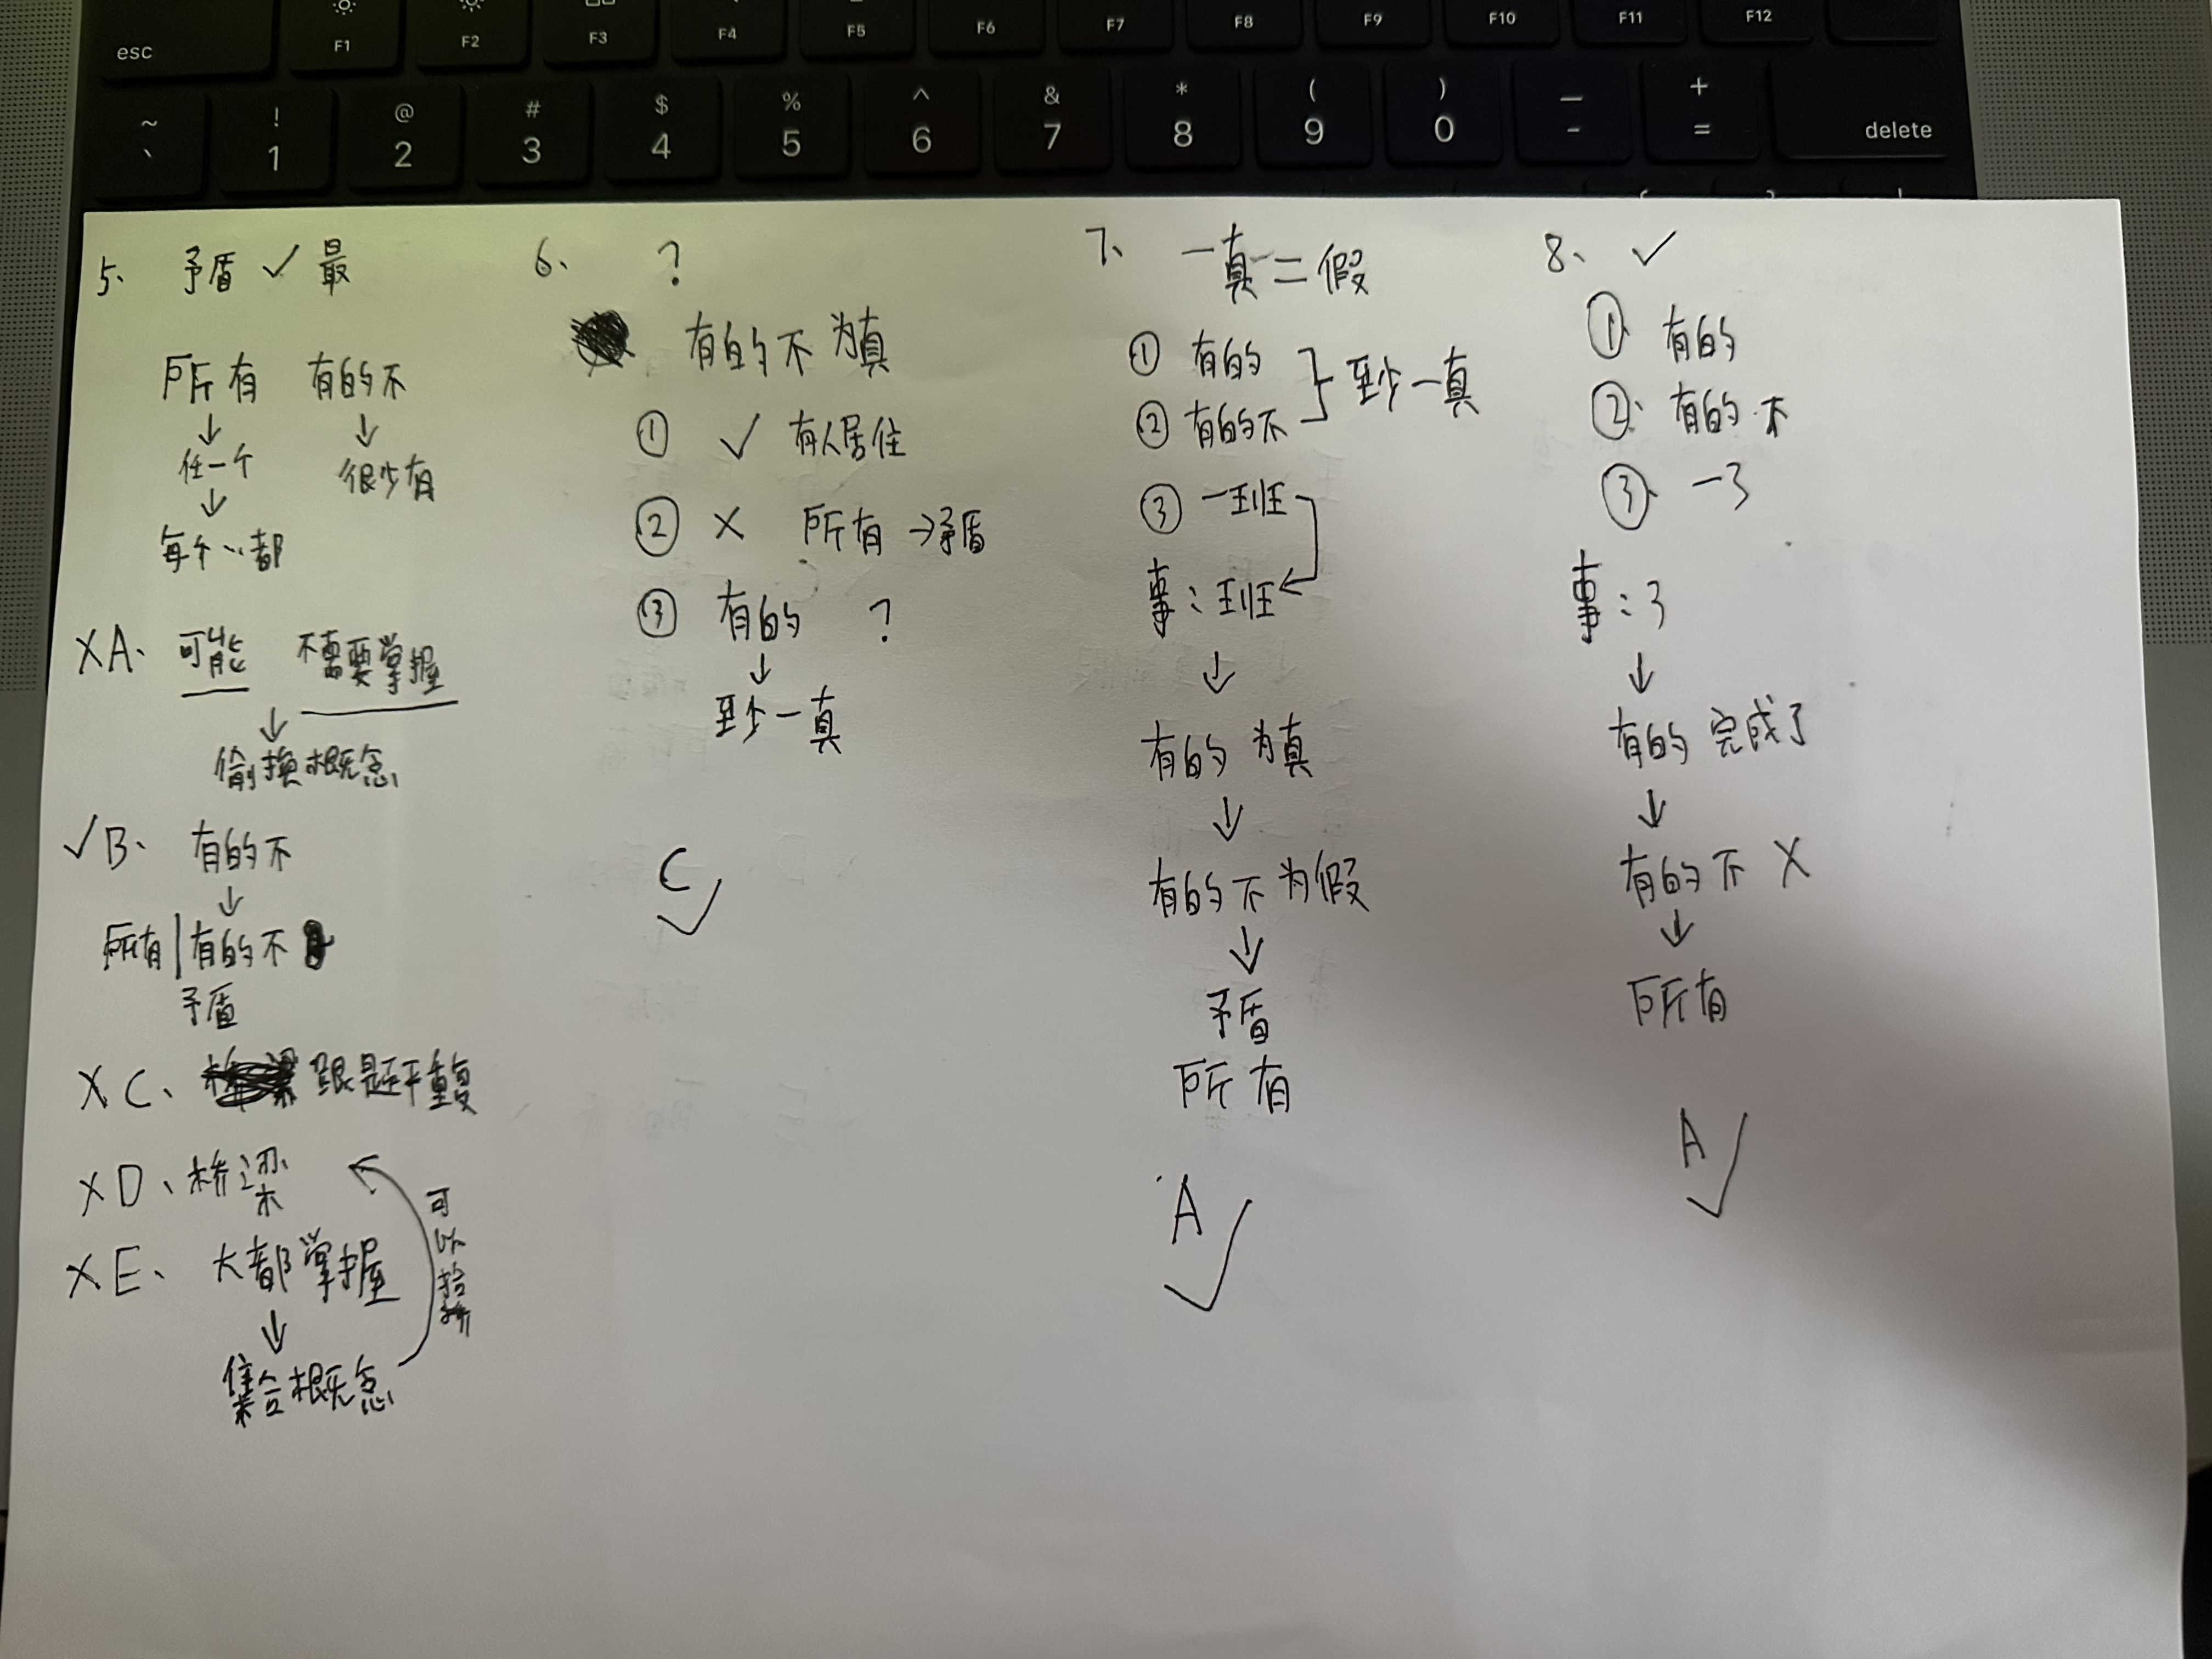 esc
F1
F2
F3
F4
F5
F6
F7
F8
F9
F10
F11
F12
~ `
! 1
@ 2
# 3
$ 4
% 5
^ 6
& 7
* 8
( 9
) 0
— -
+ =
delete
5、 矛盾 ✓ 最
所有 有的不
↓ ↓
任一个 很少有
↓
每个…都
X A、 可能 不需要掌握
↓
偷换概念
✓ B、 有的不
↓
所有 | 有的不
矛盾
X C、 跟是还干重复
X D、 桥梁
X E、 大都掌握
↓
集合概念
可以
6、 ?
有的不 为真
① ✓ 有人居住
② X 所有 → 矛盾
③ 有的 ?
↓
至少一真
C ✓
7、 一真二假
① 有的
② 有的不
至少一真
③ 一班
事: 班
↓
有的 为真
↓
有的不为假
↓
矛盾
所有
A ✓
8、 ✓
① 有的
② 有的不
③、 一3
事: 3
↓
有的 完成了
↓
有的不 X
↓
所有
A ✓